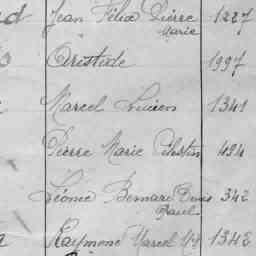 Jean Félix Pierre 1227
Marie
Aristide 1997
Marcel Lucien 1341
Pierre Marie Célestin 494
Léonce Bernard Denis 342
Raymond Marcel 1342